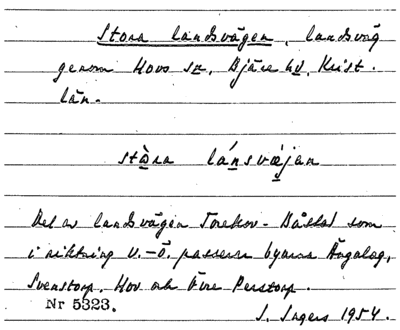 Stora landsvägen, landsväg
genom Hovs sn, Bjäre hd, Krist.
län.
stòra lánsvæjan
Del av landsvägen Torekov - Båstad som
i riktning V.-Ö. passerar byarna Ängalag,
Svenstorp, Hov och Övre Perstorp.
Nr 5323.
I. Ingers 1954.